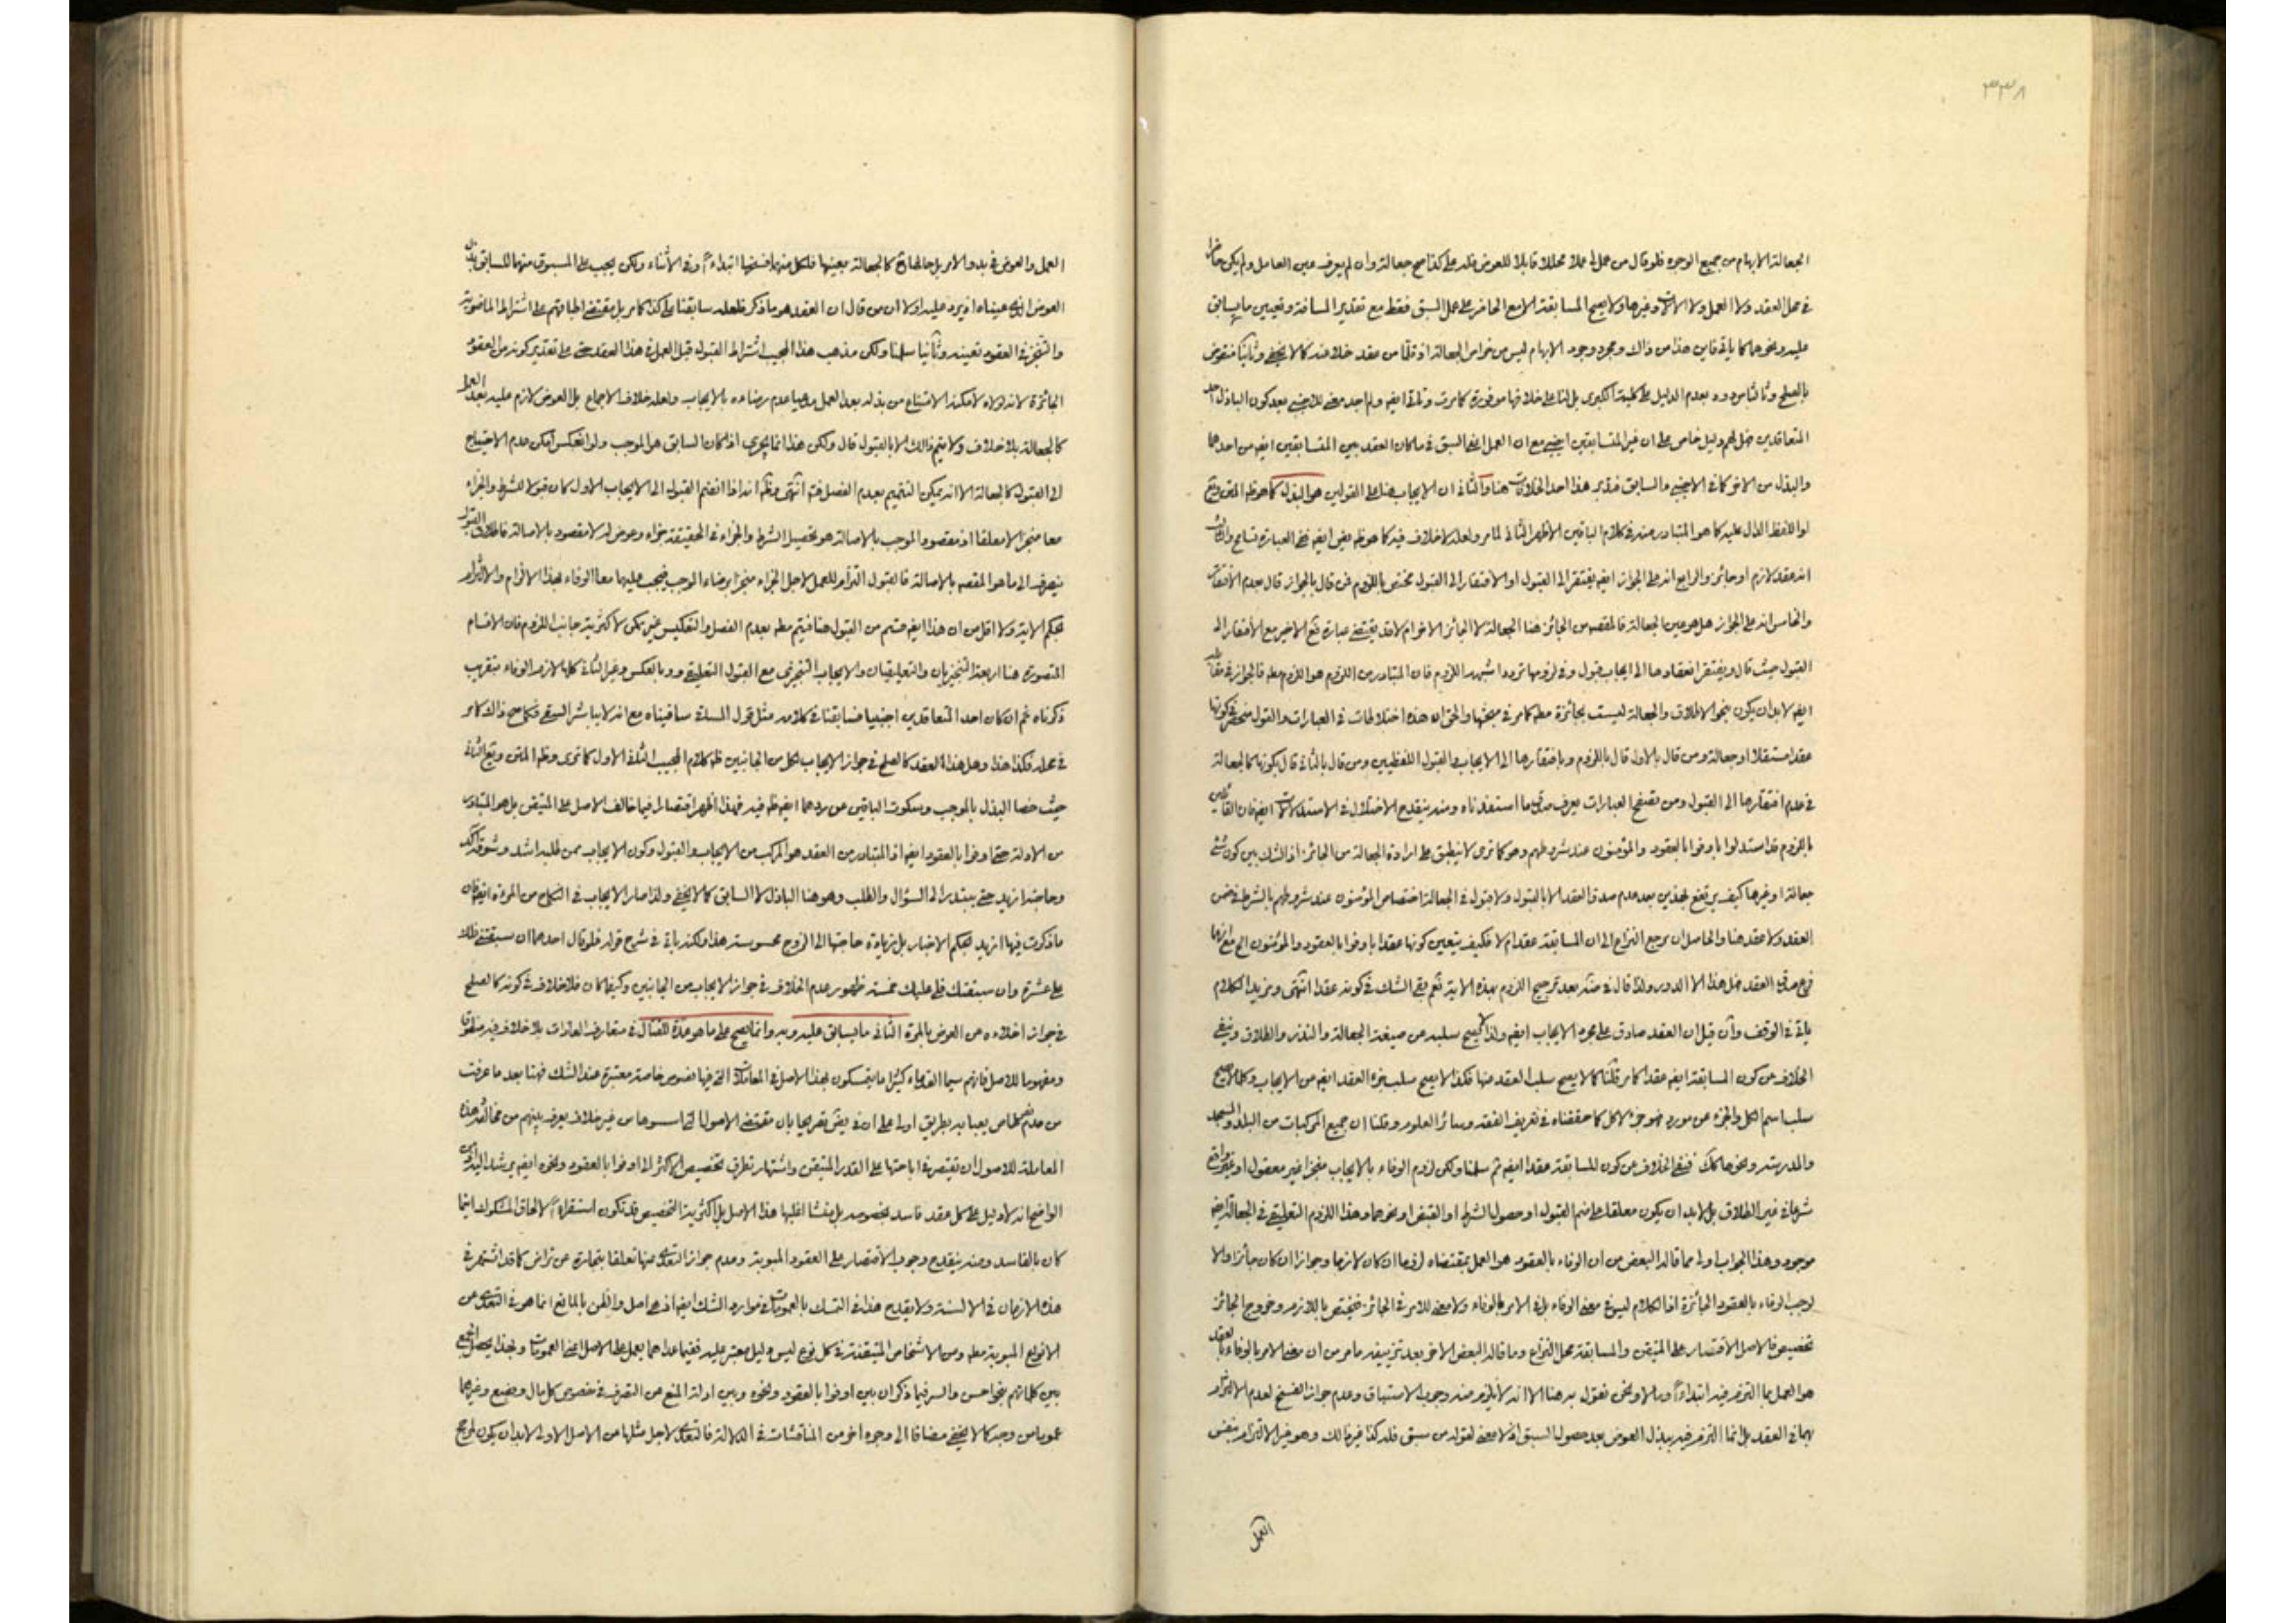 ٣٣٨
الجعالة الابهام من جميع الوجوه فلو قال من عمل لي عملا محللا قابلا للعوض فله علي كذا صح جعالة وان لم يعرف عين العامل ولم يكن حاضرا
في محل العقد ولا العمل ولا الالات وغيرها ولا يصح المسابقة الا مع الحاضر على عمل السبق فقط مع تقدير المسافة وتعيين ما يسابق
عليه ونحوها كما ياتي فاين هذا من ذاك ومجرد وجود الابهام ليس من خواص الجعالة اذ قلما من عقد خلا منه كما لا يخفى وثانيا منقوض
بالصلح وثالثا مردود بعدم الدليل على كلية الكبرى بل لنا على خلافها موفورة كما مرت وتاتي ايضا ولم اجد معنى للاجنبي بعد كون الباذل احد
المتعاقدين فهل لهم دليل خاص على ان غير المتسابقين اجنبي مع ان العمل اعني السبق في ما كان العقد بين المتسابقين ايضا من احدهما
والبذل من الاخر كما في الاجنبي والسابق فتدبر هذا احد الخلافات هنا والثاني ان الايجاب هنا على القولين هو البذل كما هو ظ المتن وتع
او اللفظ الدال عليه كما هو المتبادر منه في كلام الباقين الاظهر الثاني لما مر ولعله لا خلاف فيه كما هو ظ بعض ايضا ففي العبارة تسامح والثالث
انه عقد لازم او جائز والرابع انه على الجواز ايضا يفتقر الى القبول او الافتقار الى القبول مختص باللزوم فمن قال بالجواز قال بعدم الافتقار
والخامس انه على الجواز هل هو عين الجعالة فالمقصود من الجائز هنا الجعالة لا الجائز الاخر ام لا قد يقتضي عبارة تع الاخير مع الافتقار الى
القبول حيث قال ويفتقر انعقادها الى ايجاب وقبول وفي لزومها تردد اشبهه اللزوم فان المتبادر من اللزوم هو اللزوم مط فالجواز في مقابله
ايضا لابد ان يكون بنحو الاطلاق والجعالة ليست بجائزة مط كما مر في مبحثها والحق ان هذه اختلافات في العبارات والقول منحصر في كونها
عقدا مستقلا او جعالة ومن قال بالاول قال باللزوم وبافتقارها الى الايجاب والقبول اللفظيين ومن قال بالثاني قال بكونها كالجعالة
في عدم افتقارها الى القبول ومن تصفح العبارات يعرف صدق ما استفدناه ومنه ينقدح الاختلال في الاستدلالات ايضا فان القائلين
باللزوم قد استدلوا باوفوا بالعقود والمؤمنون عند شروطهم وهو كما ترى لا ينطبق على ارادة الجعالة من الجائز اذ الشك بين كون شئ
جعالة او غيرها كيف يرتفع بهذين بعد عدم صدق العقد الا بالقبول ولا قبول في الجعالة اختصاص المؤمنون عند شروطهم بالشرط في ضمن
العقد ولا عقد هنا والحاصل ان مرجع النزاع الى ان المسابقة عقد ام لا فكيف يتعين كونها عقدا باوفوا بالعقود والمؤمنون الخ مع انهما
فرع صدق العقد فهل هذا الا الدور ولذا قال في بعد ترجيح اللزوم بهذه الاية نعم بقي الشك في كونه عقدا انتهى ومزيد الكلام
ياتي في الوقف وان قيل ان العقد صادق على مجرد الايجاب ايضا ولذا لا يصح سلبه عن صيغة الجعالة والنذر والطلاق ونفي
الخلاف عن كون المسابقة ايضا عقدا كما مر قلنا كما لا يصح سلب العقد منها فكذا لا يصح سلب جزء العقد ايضا عن الايجاب وكلما لا يصح
سلب اسم الكل والجزء عن مورد فهو جزء لا كل كما حققناه في تعريف الفقه وسائر العلوم وقلنا ان جميع المركبات من البلد والمسجد
والمدرسة ونحوها كك فنفي الخلاف عن كون المسابقة عقدا ايضا ثم سلمنا ولكن لزوم الوفاء بالايجاب منجزا غير معقول او غير واقع
شرعا في غير الطلاق بل لابد ان يكون معلقا على ضم القبول او حصول الشرط او القبض او نحوها وهذا اللزوم التعليقي في الجعالة ايضا
موجود وهذا الجواب اولى مما قاله البعض من ان الوفاء بالعقود هو العمل بمقتضاه لزوما ان كان لازما وجوازا ان كان جائزا والا
لوجب الوفاء بالعقود الجائزة اذ الكلام ليس في معنى الوفاء بل في الامر بالوفاء ولا معنى للامر في الجائز فيختص باللازم وخروج الجائز
تخصيص فالاصل الاقتصار على المتيقن والمسابقة محل النزاع وما قاله البعض الاخر بعد تزييفه ما مر من ان معنى الامر بالوفاء بالعقد
هو العمل بما التزم فيه ابتداء ونحن نقول به هنا الا انه لا يلزم منه وجوب الاستباق وعدم جواز الفسخ لعدم الالتزام
بهما في العقد بل انما التزم فيه ببذل العوض بعد حصول السبق اذ لا معنى لقوله من سبق فله كذا غير ذلك وهو غير الالتزام بنفس
العمل
العمل والعوض في بدو الامر بل حالها ح كالجعالة بعينها فلكل منهما فسخها ابتداء وفي الاثناء ولكن يجب على المسبوق منهما للسابق بذل
العوض الذي عيناه اذ يرد عليه اولا ان من قال ان العقد هو ما ذكر فلعله سابقنا على كذا كما مر بل مقتضى اطباقهم على اشتراط الماضوية
والتنجيز في العقود تعينه وثانيا سلمنا ولكن مذهب هذا المجيب اشتراط القبول قبل العمل في هذا العقد حتى على تقدير كونه من العقود
الجائزة لانه لولاه لامكنه الامتناع من بذله بعد العمل مدعيا عدم رضاءه بالايجاب ولعله خلاف الاجماع بل العوض لازم عليه بعد العمل
كالجعالة بلا خلاف ولا يتم ذلك الا بالقبول قال ولكن هذا انما يجري اذا كان السابق هو الموجب ولو انعكس امكن عدم الاحتياج
الى القبول كالجعالة الا انه يمكن التتميم بعدم الفصل فتم انتهى وظ انه اذا انضم القبول الى الايجاب الاول كان قبولا للشرط والجزاء
معا منجزا لا معلقا اذ مقصود الموجب بالاصالة هو تحصيل الشرط والجزاء في الحقيقة جزاء وعوض له لا مقصود بالاصالة فاطلاق القبول
ينصرف الى ما هو المقصود بالاصالة فالقبول التزام للعمل لاجل الجزاء منجزا برضاء الموجب فيجب عليهما معا الوفاء بهذا الالزام والالتزام
بحكم الاية ولا اقل من ان هذا ايضا قسم من القبول هنا فيتم مط بعدم الفصل والتعكيس غير ممكن لاكثرية جانب اللزوم فان الاقسام
المتصورة هنا اربعة التنجيزيان والتعليقيان والايجاب التنجيزي مع القبول التعليقي وبالعكس وغير الثاني كلها لازم الوفاء بتقريب
ذكرناه ثم ان كان احد المتعاقدين اجنبيا فسابقنا في كلامه مثل قول المساقي ساقيناه مع انه لا يباشر السقي فكما صح ذاك كما مر
في محله فكذا هذا وهل هذا العقد كالصلح في جواز الايجاب لكل من الجانبين ظ كلام المجيب الثاني الاول كما ترى وظ المتن وتع الثاني
حيث خصا البذل بالموجب وسكوت الباقين عن ردهما ايضا ظ فيه فهذا اظهر اقتصارا فيما خالف الاصل على المتيقن بل هو المتبادر
من الادلة حتى اوفوا بالعقود ايضا اذ المتبادر من العقد هو المركب من الايجاب والقبول وكون الايجاب ممن طلبه اشد وشوقه اكد
وحاجته ازيد حتى يبتدر الى السؤال والطلب وهو هنا الباذل لا السابق كما لا يخفى ولذا صار الايجاب في النكاح من المرءة ايضا فان
ما ذكرت فيها ازيد بحكم الاخبار بل زيادة حاجتها الى الزوج محسوسة هذا ولكنه ياتي في شرح قوله فلو قال احدهما ان سبقتني فلك
علي عشرة وان سبقتك فلي عليك خمسة ظهور عدم الخلاف في جواز الايجاب من الجانبين وكيف كان فلا خلاف في كونه كالصلح
في جواز اخلاءه من العوض بالمرة الثاني ما يسابق عليه وبه وانما يصح على ما هو عدة للقتال في متعارف العادات بلا خلاف فيه منطوقا
ومفهوما للاصل فانهم سيما القدماء كثيرا ما يتمسكون بهذا الاصل في المعاملات التي فيها نصوص خاصة معتبرة عند الشك فهنا بعد ما عرفت
من عدم نص خاص يعبا به بطريق اولى على ان في بعض تصريحا بان مقتضى الاصول التي اسسوها من غير خلاف يعرف بينهم من مخالفة هذه
المعاملة للاصول ان تقتصر في اباحتها على القدر المتيقن واشتهار تطرق تخصيص الاكثر الى اوفوا بالعقود ونحوه ايضا يرشد اليه اذ من
الواضح انه لا دليل على كل عقد فاسد بخصوصه بل منشا اغلبها هذا الاصل بل اكثرية التخصيص قد تكون استقراء لالحاق المشكوك اينما
كان بالفاسد ومنه ينقدح وجوب الاقتصار على العقود المبوبة وعدم جواز التعدي منها تعلقا بتجارة عن تراض كما قد اشتهر في
هذه الازمان في الالسنة ولا يقدح هذا في التمسك بالعمومات في موارد الشك ايضا اذ هي اصل والظن بالمانع انما هو في التعدي عن
الانواع المبوبة مط ومن الاشخاص المتيقنة في كل نوع ليس دليل معتبر عليه ففيما عداهما يعمل على الاصل اعني العمومات وبهذا يحصل الجمع
بين كلماتهم بنحو احسن والسر فيما ذكر ان بين اوفوا بالعقود ونحوه وبين ادلة المنع من التصرف في خصوص كل مال وبضع وغيرهما
عموما من وجه كما لا يخفى مضافا الى وجوه اخر من المناقشات في الدلالة فالتعدي لاجل مثلها من الاصل الاولي لابد ان يكون لمرجح